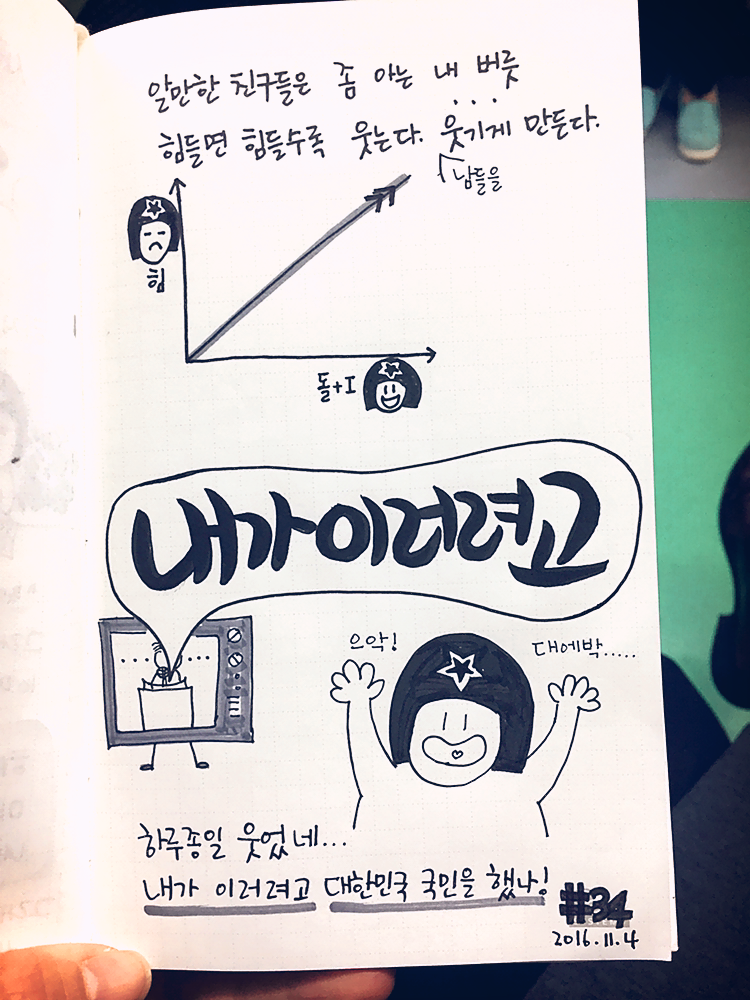 알만한 친구들은 좀 아는 내 버릇
힘들면 힘들수록 웃는다. 웃기게 만든다.
남들을
힘
돌+I
내가이러려고
으악!
대에박.....
하루종일 웃었네...
내가 이러려고 대한민국 국민을 했나!
#34
2016.11.4